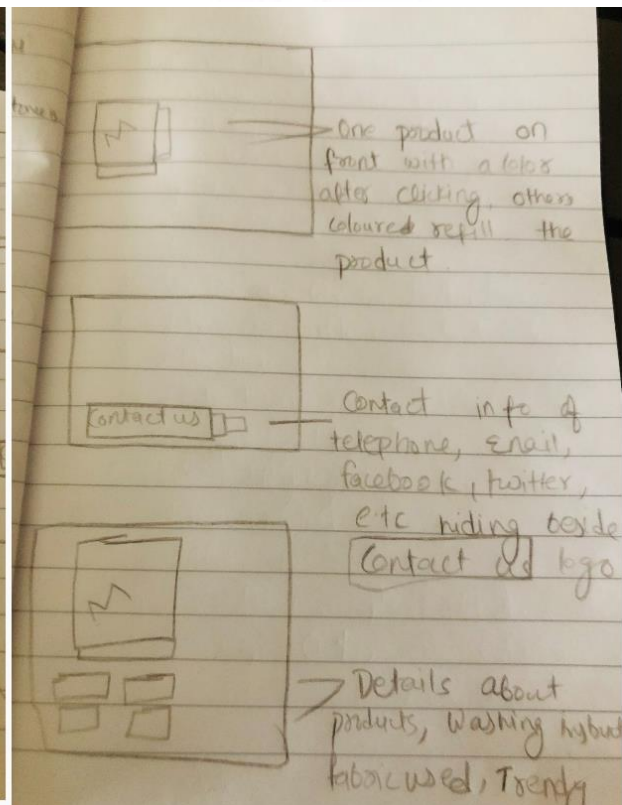 One product on
front with a color
after clicking, others
coloured refill the
product.
Contact us
Contact info of
telephone, Email,
facebook, twitter,
etc hiding beside
Contact Us logo
Details about
products, Washing
fabric used, Trendy